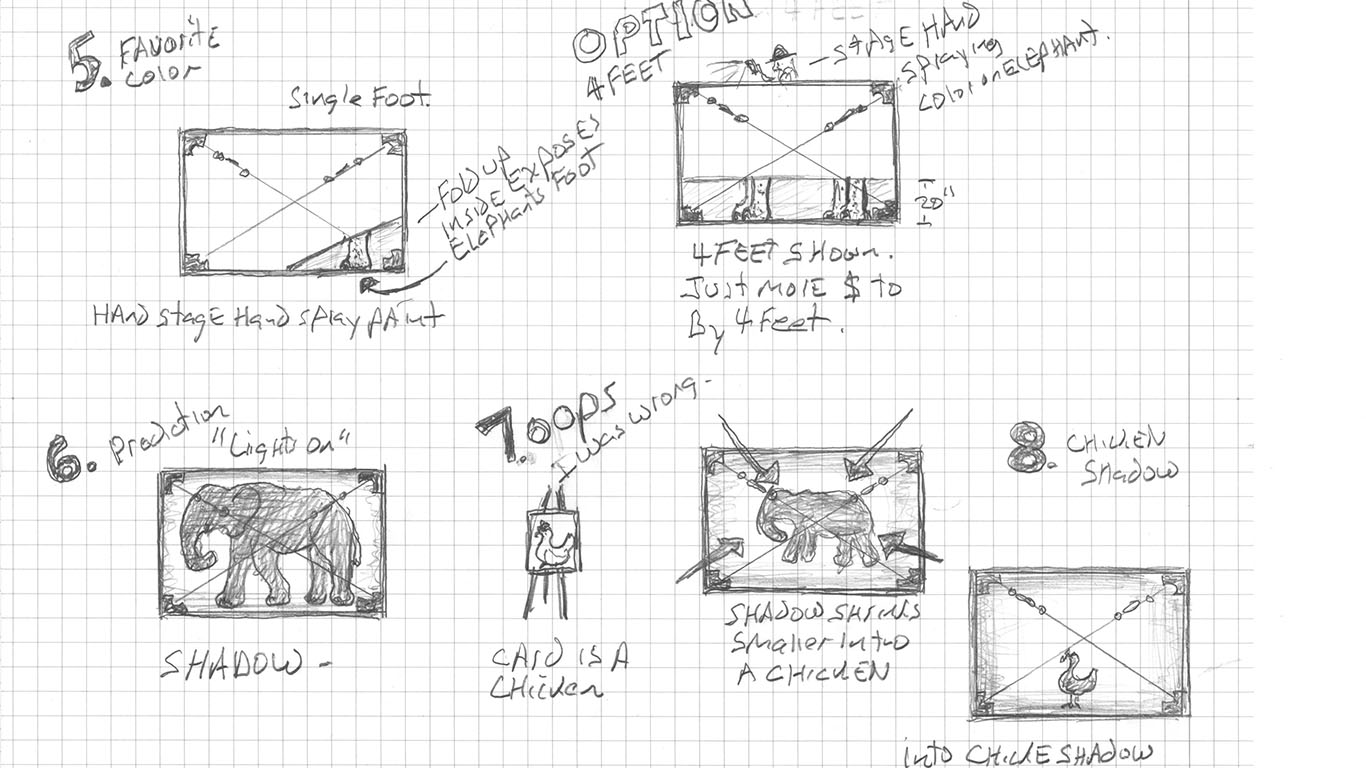 5. FAVORITE
COLOR
Single Foot.
Fold up
inside Exposes
ElEphants Foot
HAnd stagE Hand spray pAint
OPTION
4 FEET
STAgE HAnd
spraying
color on ElEpHAnt.
20"
4 FEET SHown.
Just more $ to
By 4 Feet.
6. Prediction
"Lights on"
SHADOW -
7. OOPS
I was wrong-
CARD IS A
CHicken
SHADOW SHrinks
Smaller into
A CHICKEN
8. CHICKEN
SHadow
into CHICKE SHADOW